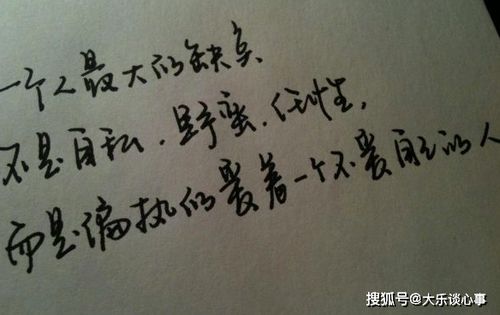 一个人最大的缺点
不是自私、野蛮、任性,
而是偏执的爱着一个不爱自己的人
搜狐号@大乐谈心事